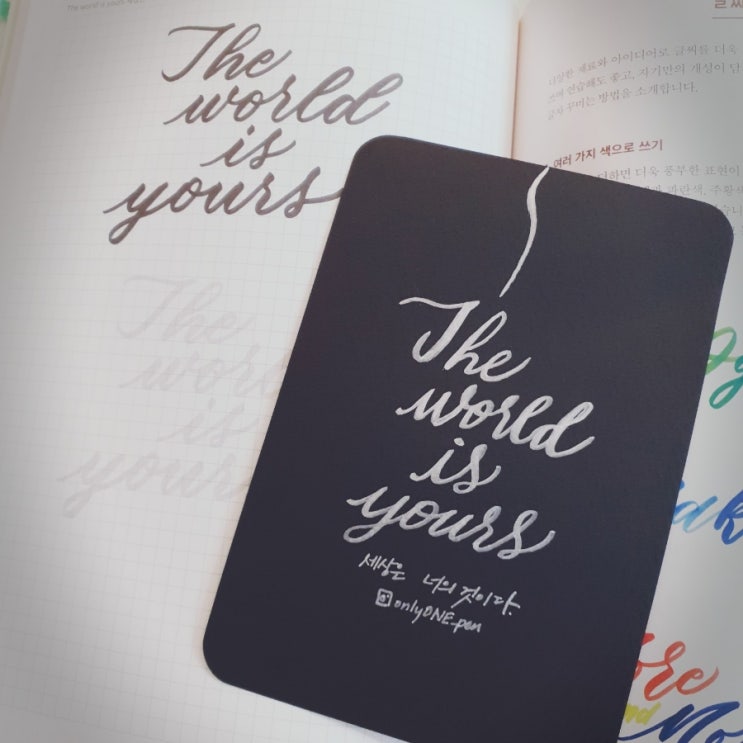 The world is yours
The
world
is
yours
The
world
is
yours
다양한 재료와 아이디어로 글씨를 더욱
연습해도 좋고, 자기만의 개성이 담
꾸미는 방법을 소개합니다.
여러 가지 색으로 쓰기
더하면 더욱 풍부한 표현이
파란색, 주황색
The
world
is
yours
세상은 너의 것이다.
onlyONE.pen